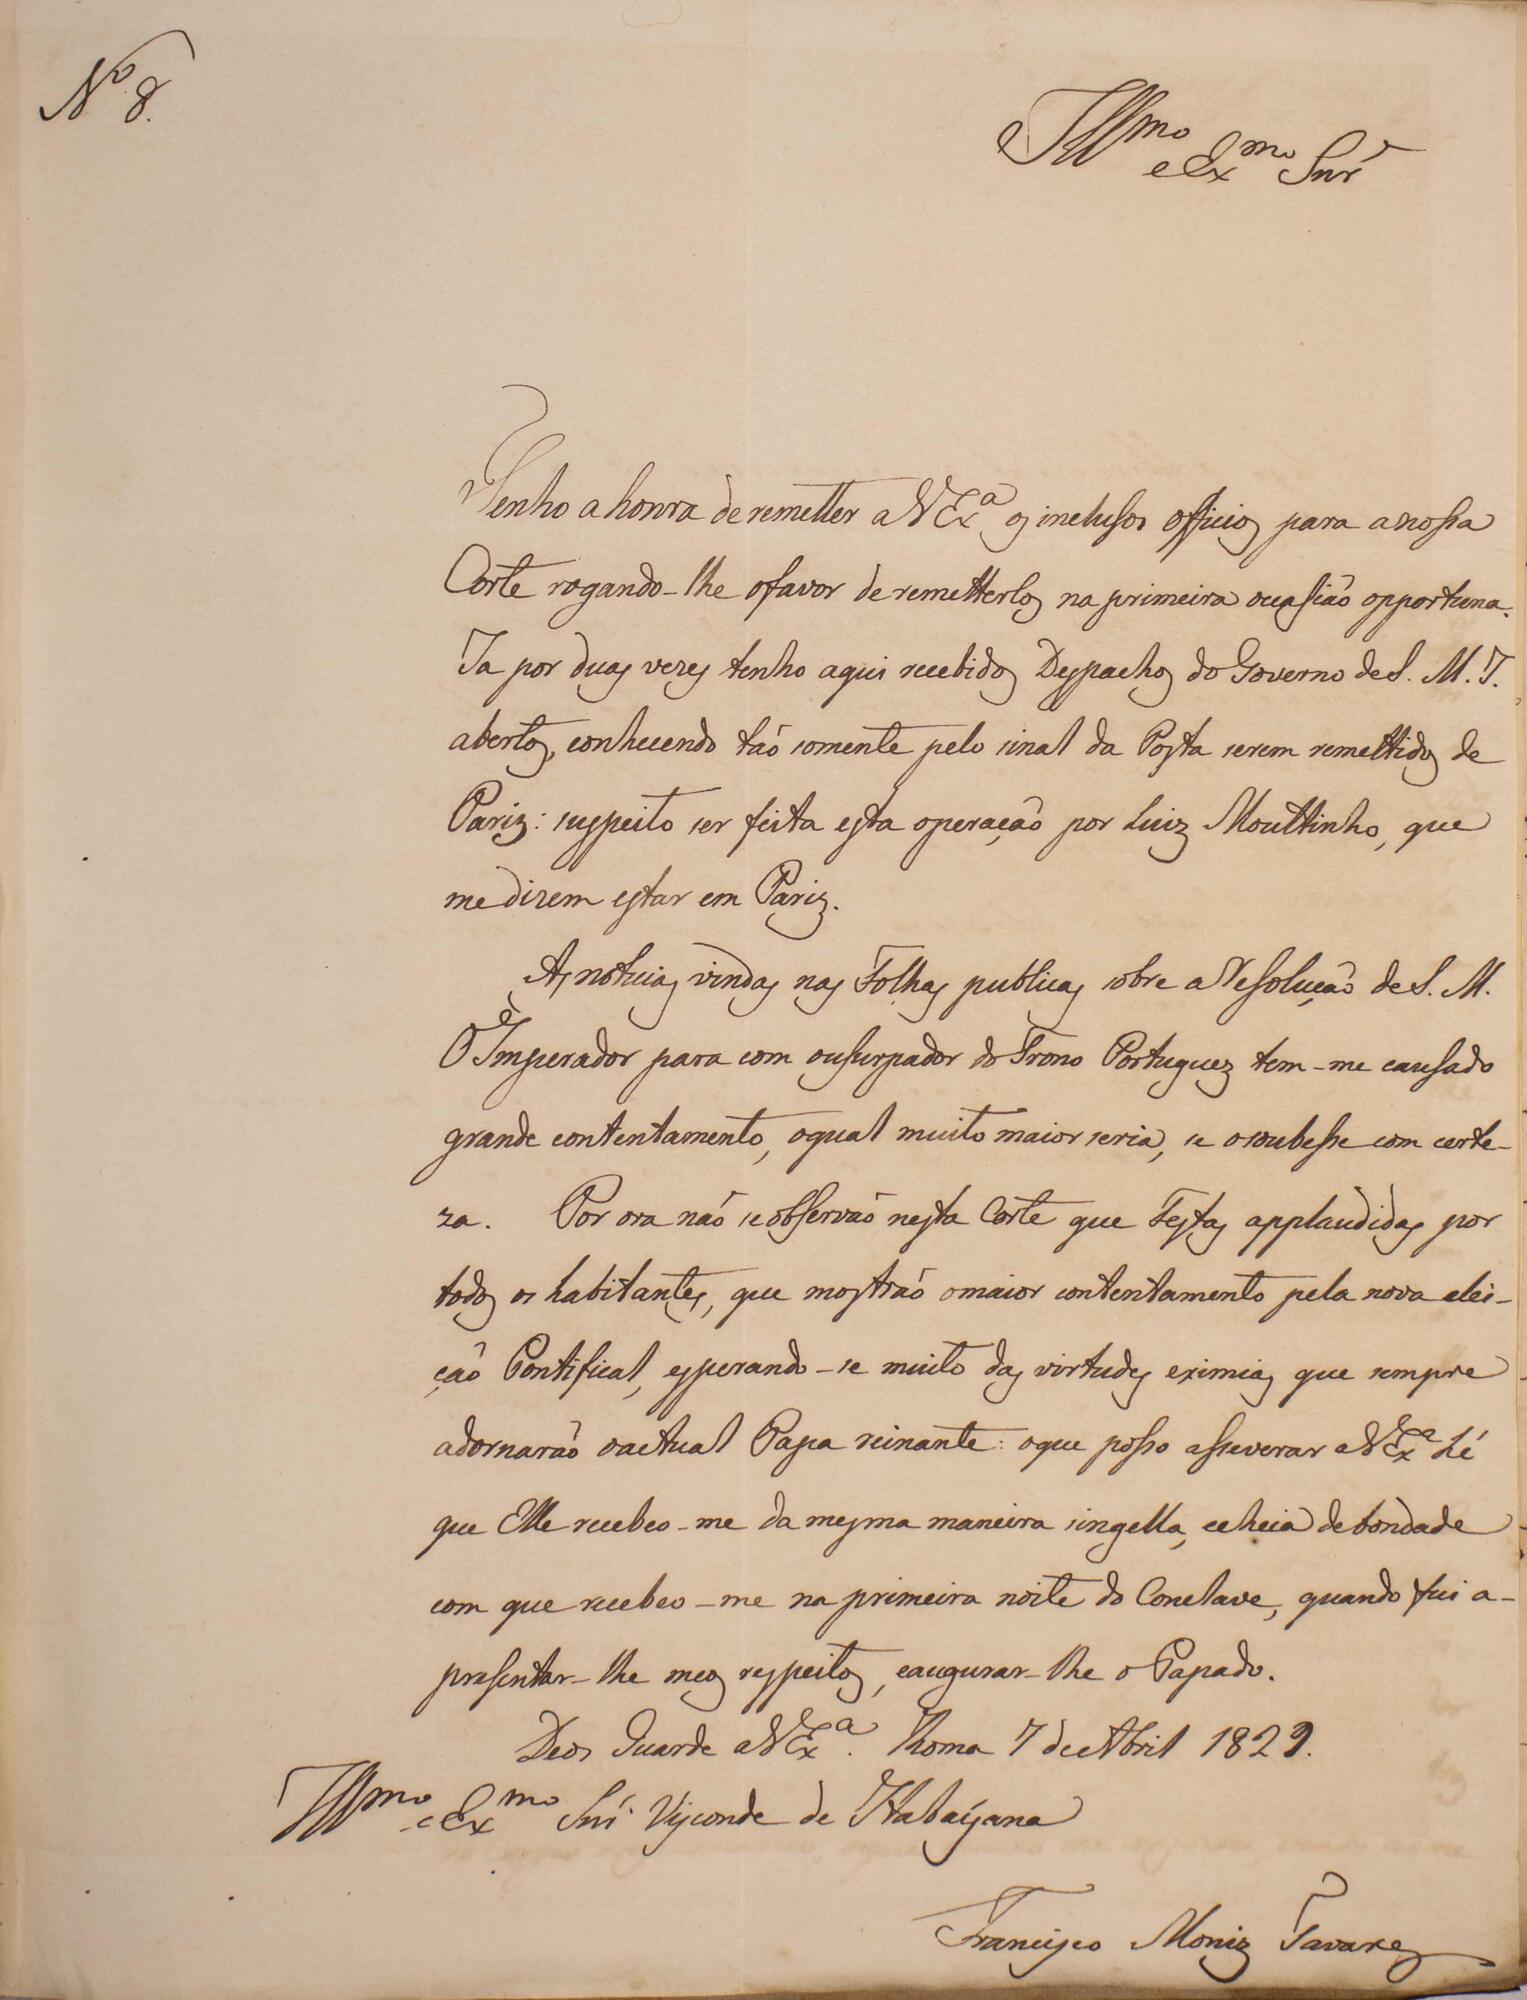 Nº 8.
Illmo
e Exmo Snr
Tenho a honra de remetter a VExª os inclusos officios para a nossa
Corte rogando-lhe o favor de remetterlos na primeira occasião opportuna.
Ja por duas vezes tenho aqui recebidos Despachos do Governo de S. M. I.
abertos, conhecendo tão somente pelo sinal da Posta serem remettidos de
Pariz: suspeito ser feita esta operação por Luiz Mouttinho, que
me dizem estar em Pariz.
As noticias vindas nas Folhas publicas sobre a Resolução de S. M.
O Imperador para com o usurpador do Trono Portuguez tem-me causado
grande contentamento, o qual muito maior seria, se o soubesse com certe-
za. Por ora não se observão nesta Corte que Festas applaudidas por
todos os habitantes, que mostrão o maior contentamento pela nova elei-
ção Pontifical, esperando-se muito das virtudes eximias que sempre
adornarão o actual Papa reinante: o que posso asseverar a VExª hé
que Elle recebeo-me da mesma maneira singella, e cheia de bondade
com que recebeo-me na primeira noite do Conclave, quando fui a-
presentar-lhe meos respeitos, e augurar-lhe o Papado.
Deos Guarde a VExª. Roma 7 de Abril 1829.
Illmo e Exmo Snr. Visconde de Itabayana
Francisco Moniz Tavares